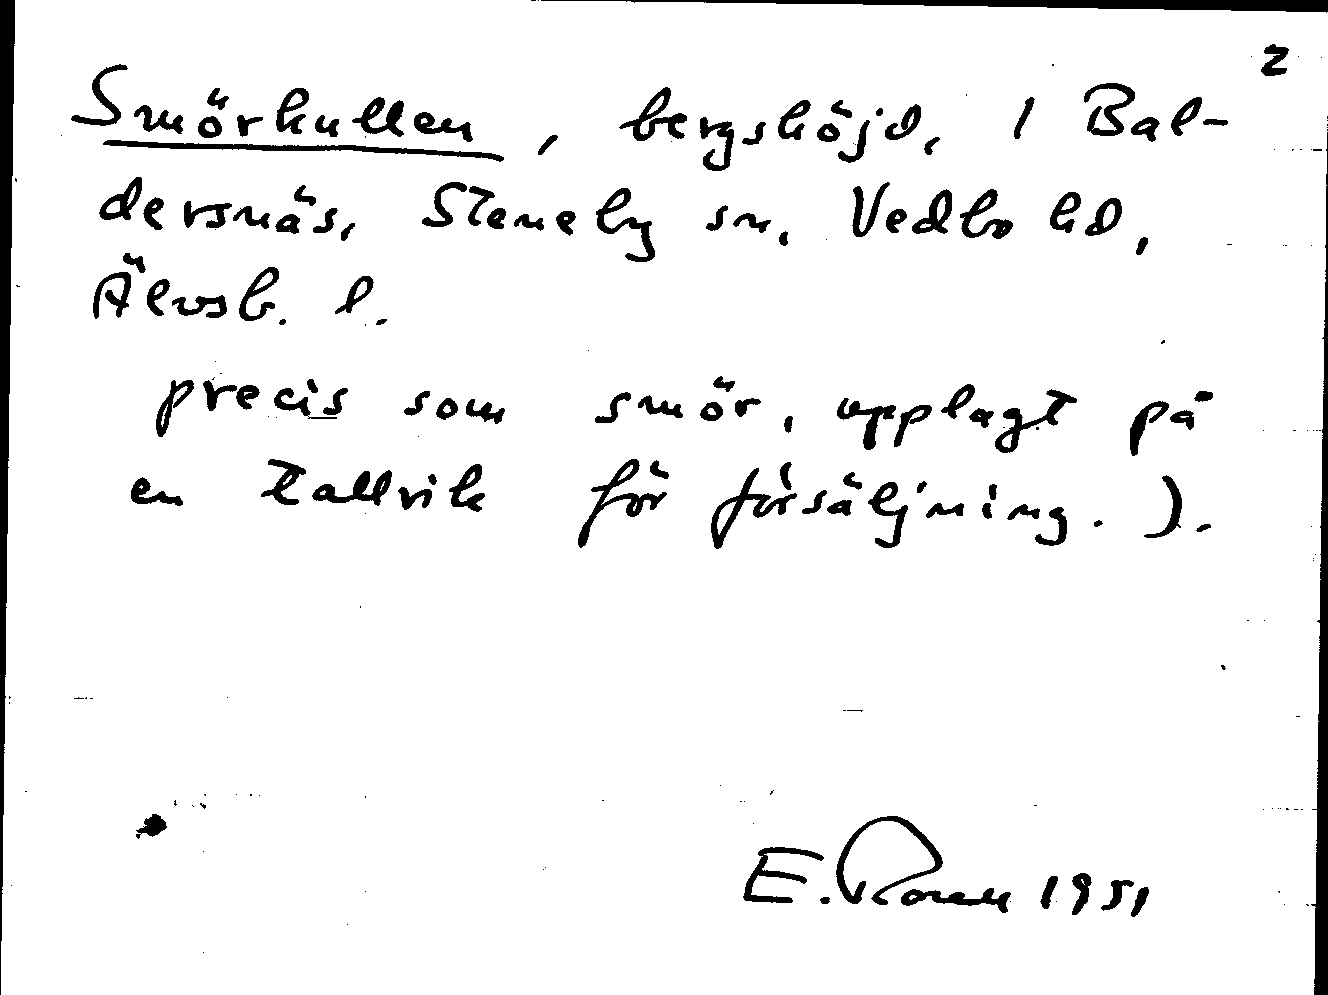 2
Smörkullen, bergshöjd, 1 Bal-
dersnäs, Steneby sn, Vedbo hd,
Älvsb. l.
precis som smör, upplagt på
en tallrik för försäljning.).
E. 1951